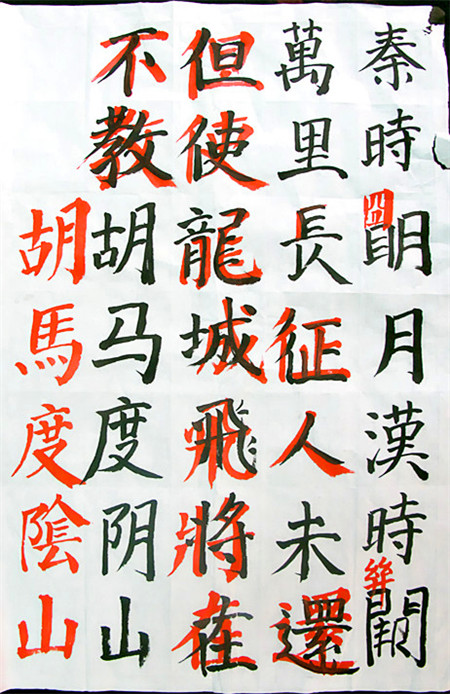 秦時明月漢時關
萬里長征人未還
但使龍城飛將在
不教胡马度阴山
胡馬度陰山